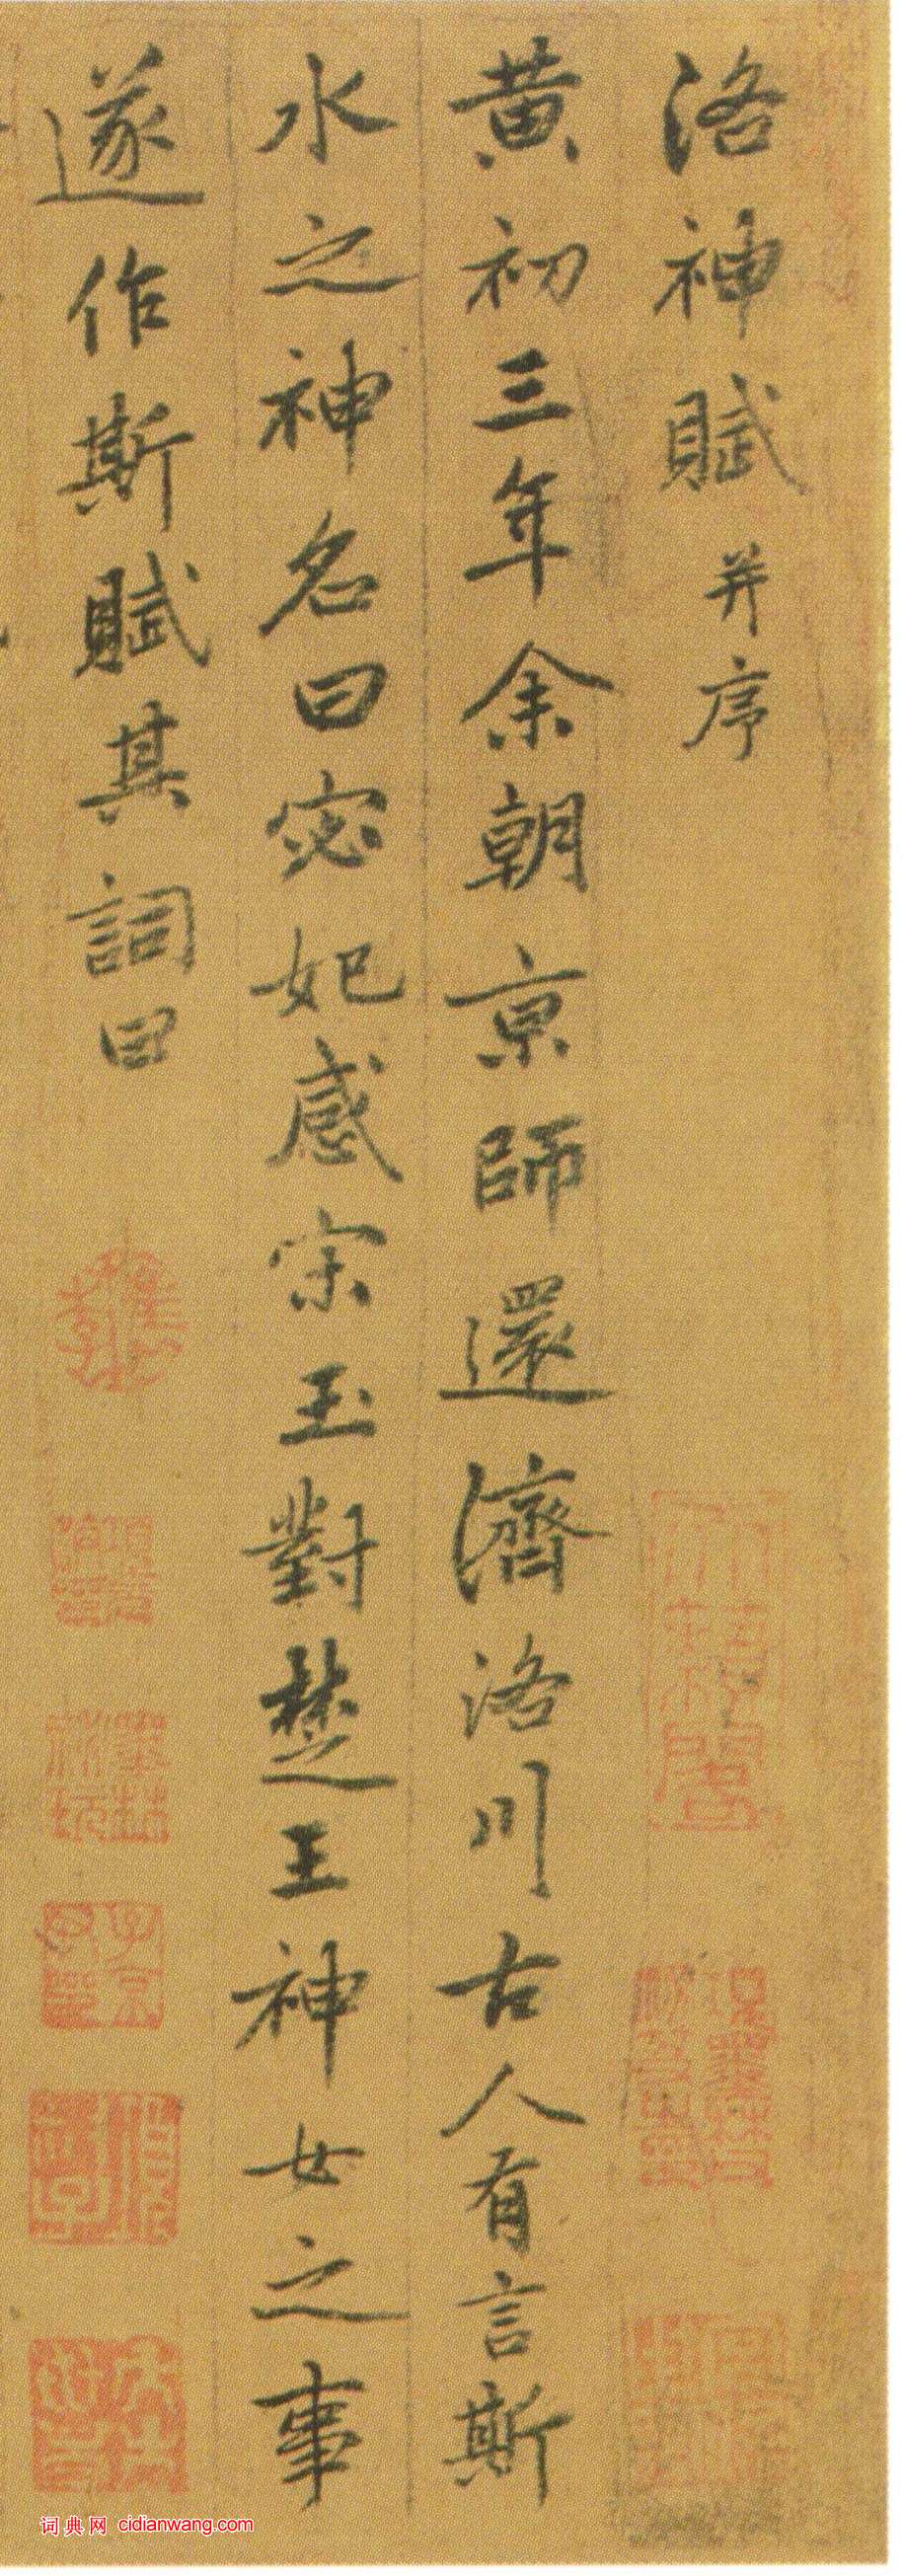 洛神賦 并序
黄初三年余朝京師還濟洛川古人有言斯
水之神名曰宓妃感宋玉對楚王神女之事
遂作斯賦其詞曰
天籟閣
子京
墨林
項元汴印
词典网 cidianwang.com